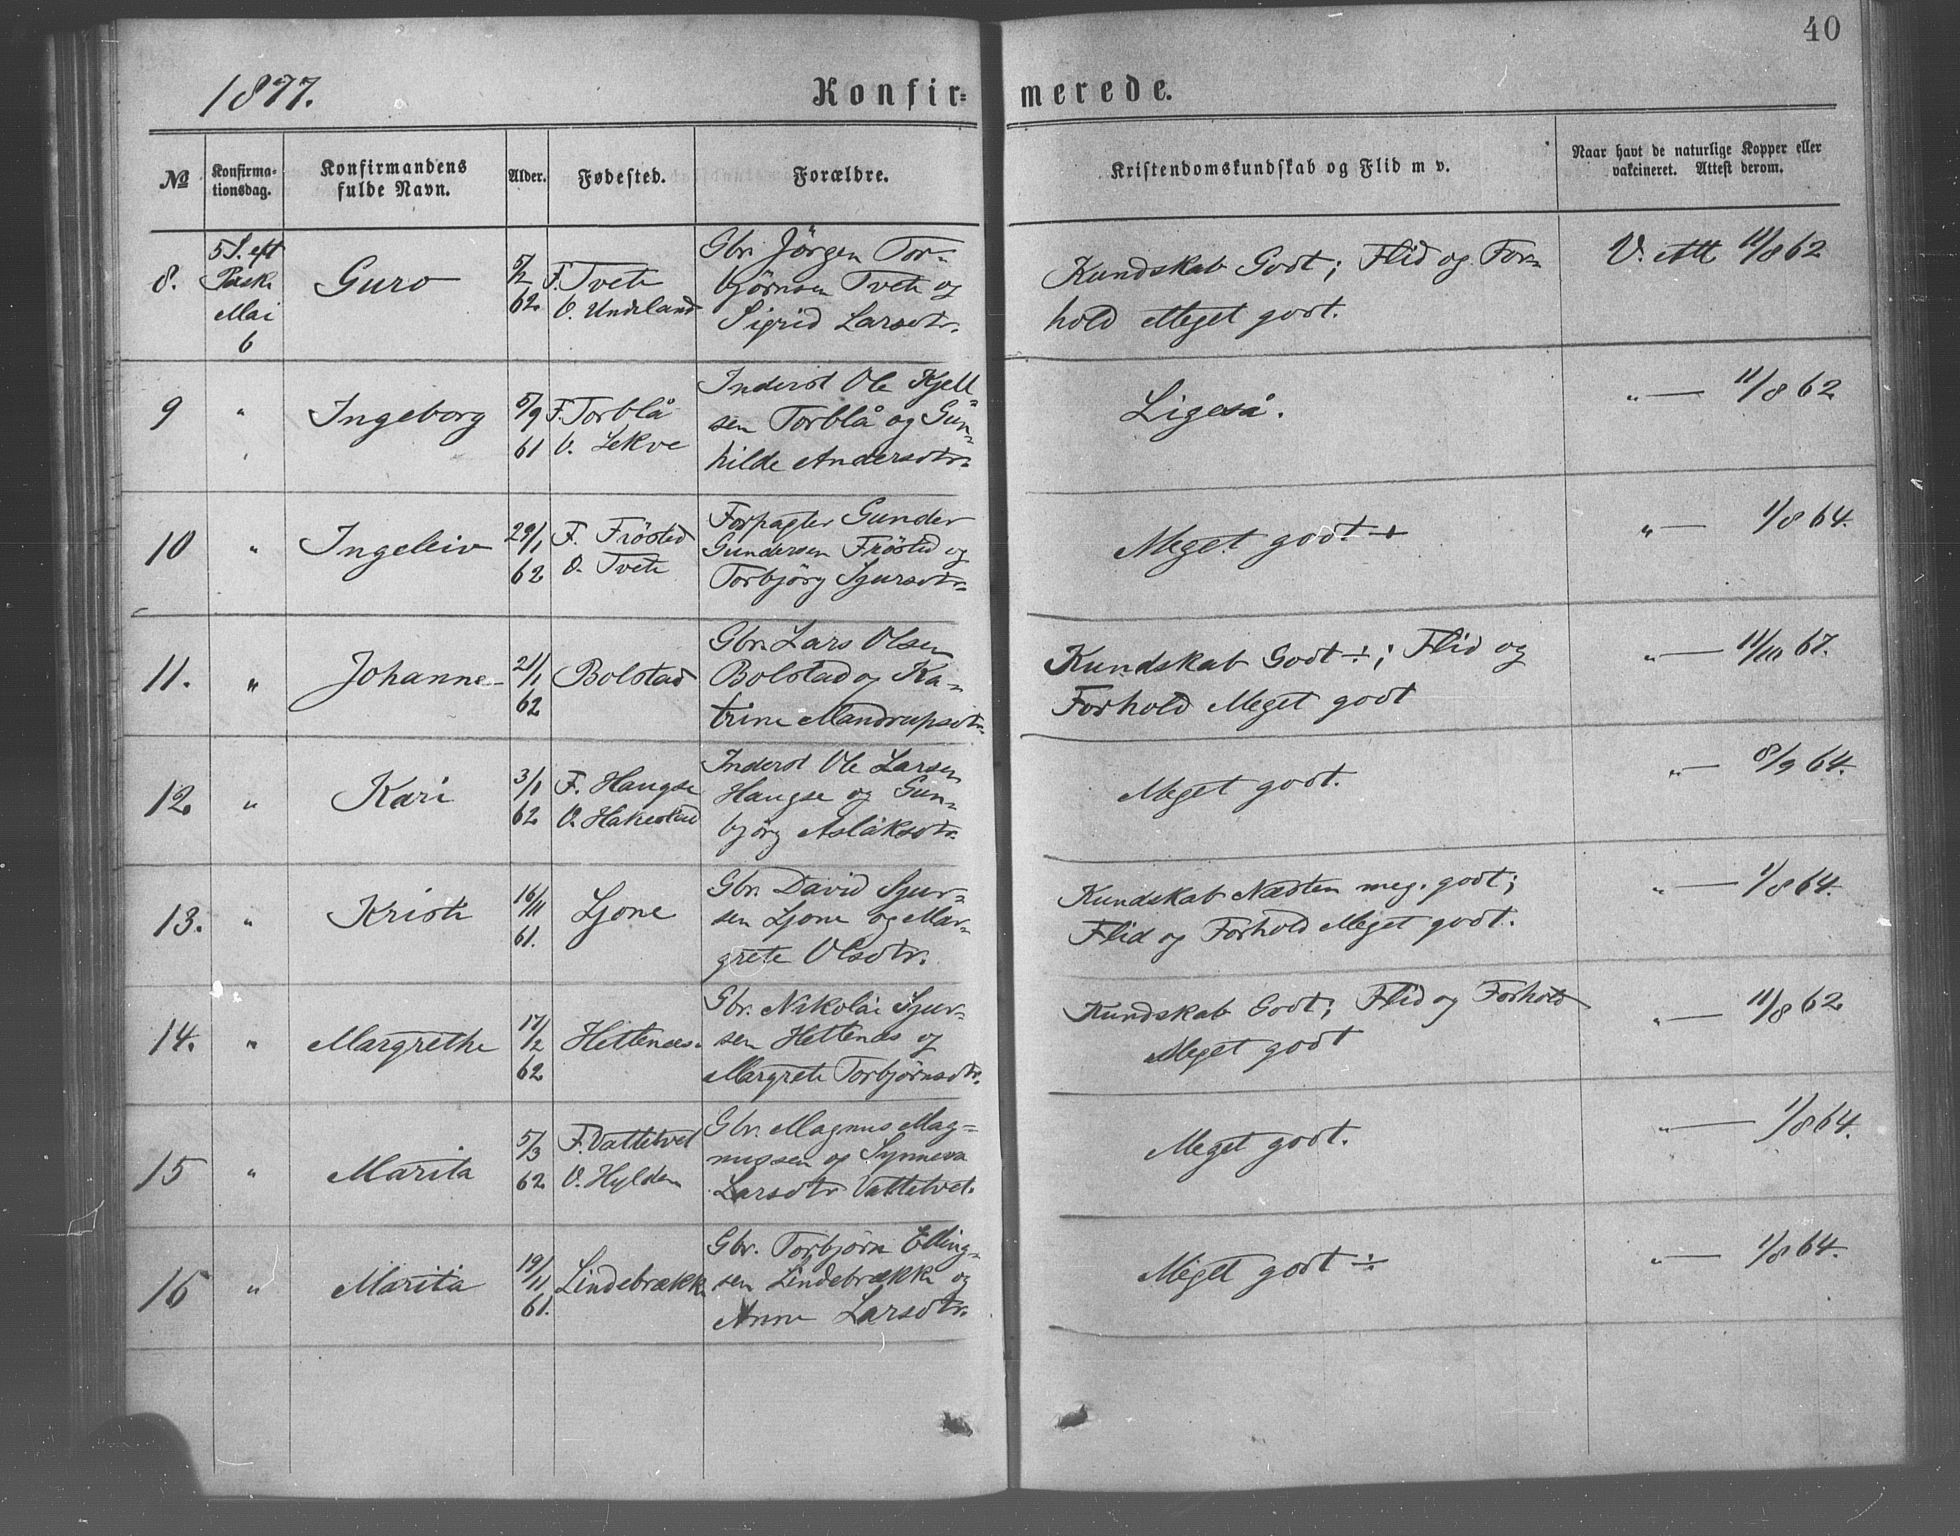 40
1877. Konfir= merede.
№ Konfirma-tionsdag. Konfirmandens fulde Navn. Alder. Fødested. Forældre. Kristendomskundskab og Flid m v. Naar havt de naturlige Kopper eller vakcineret. Attest derom.
8. 5 S. eft Guro F. Tvete Gbr. Jörgen Tor- Kundskab Godt; Flid og For- V. Att 11/8 62
Paske 62 O. Undeland björnsen Tvete og hold Meget godt.
Mai Sigrid Larsdtr.
6
9 " Ingeborg 5/9 F. Torblå Inderst Ole Kjell- Ligeså. " — 11/8 62
61 O. Lekve sen Torblå og Gun-
hilde Andersdtr.
10 " Ingeleiv 29/1 F. Frösted Forpagter Gunder Meget godt + " — 1/8 64.
62 O. Tvete Gundersen Frösted og
Torbjörg Sjursdtr.
11. " Johanne 21/1 Bolstad Gbr. Lars Olsen Kundskab Godt ÷; Flid og " — 11/10 67.
62 Bolstad og Ka- Forhold Meget godt
trine Mandrupsdtr.
12 " Kari 3/1 F. Haugse Inderst Ole Larsen Meget godt. " — 8/9 64.
62 O. Hakestad Haugse og Gun-
björg Aslaksdtr.
13. " Kristi 16/11 Ljone Gbr. David Sjur- Kundskab Næsten meg. godt; " — 1/8 64.
61. sen Ljone og Mar- Flid og Forhold Meget godt.
grete Olsdtr.
14. " Margrethe 17/2 Hettenæs. Gbr. Nikolai Sjur- Kundskab Godt; Flid og Forhold " — 11/8 62
62 sen Hettenæs og Meget godt
Margrete Torbjörnsdtr.
15 " Marita 5/3 F. Vattetvet Gbr. Magnus Mag= Meget godt. " — 1/8 64.
62 O. Hylden nussen og Synneva
Larsdtr Vattetvet.
16 " Marita 19/11 Lindebrække Gbr. Torbjörn Elling- Meget godt ÷ " — 1/8 64.
61. sen Lindebrække og
Anne Larsdtr.